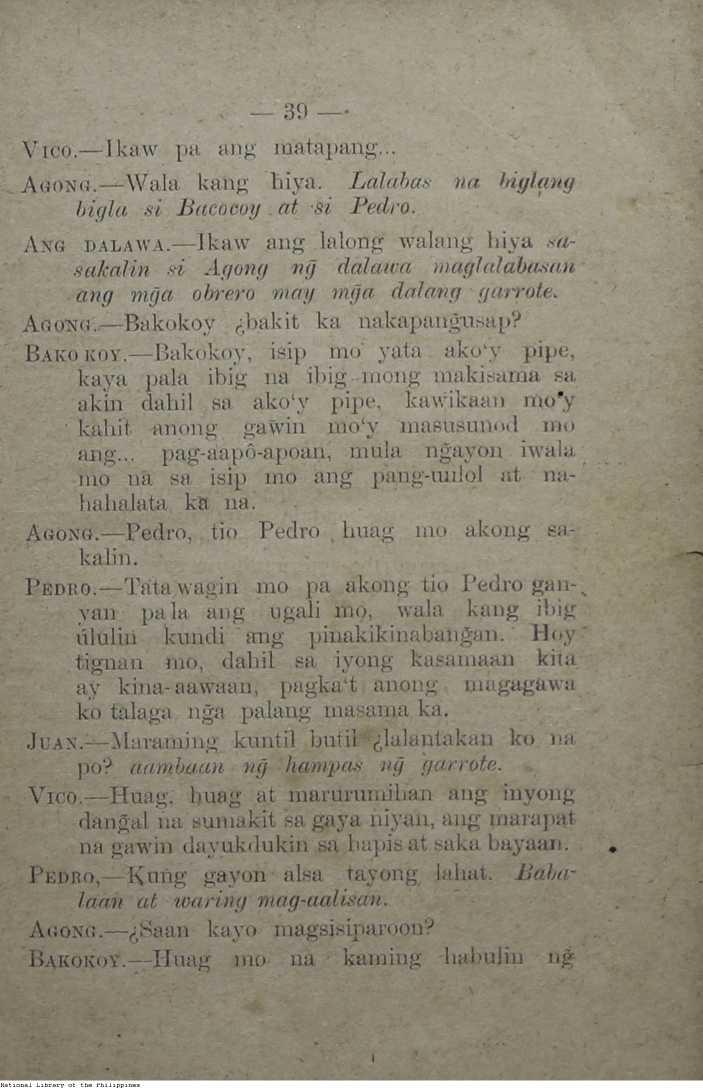 — 39 —
VICO.—Ikaw pa ang matapang...
AGONG.—Wala kang hiya. Lalabas na biglang
bigla si Bacocoy at si Pedro.
ANG DALAWA.—Ikaw ang lalong walang hiya sa-
sakalin si Agong ng̃ dalawa maglalabasan
ang mg̃a obrero may mg̃a dalang garrote.
AGONG.—Bakokoy ¿bakit ka nakapang̃usap?
BAKOKOY.—Bakokoy, isip mo yata ako'y pipe,
kaya pala ibig na ibig mong makisama sa
akin dahil sa ako'y pipe, kawikaan mo'y
kahit anong gawin mo'y masusunod mo
ang... pag-aapô-apoan, mula ng̃ayon iwala
mo na sa isip mo ang pang-uulol at na-
hahalata ka na.
AGONG.—Pedro, tio Pedro huag mo akong sa-
kalin.
PEDRO.—Tatawagin mo pa akong tio Pedro gan-
yan pala ang ugali mo, wala kang ibig
úlulin kundi ang pinakikinabang̃an. Hoy
tignan mo, dahil sa iyong kasamaan kita
ay kina-aawaan, pagka't anong magagawa
ko talaga ng̃a palang masama ka.
JUAN.—Maraming kuntil butil ¿lalantakan ko na
po? aambaan ng̃ hampas ng̃ garrote.
VICO.—Huag, huag at marurumihan ang inyong
dang̃al na sumakit sa gaya niyan, ang marapat
na gawin dayukdukin sa hapis at saka bayaan.
PEDRO,—Kung gayon alsa tayong lahat. Baba-
laan at waring mag-aalisan.
AGONG.—¿Saan kayo magsisiparoon?
BAKOKOY.—Huag mo na kaming habulin ng̃
National Library of the Philippines